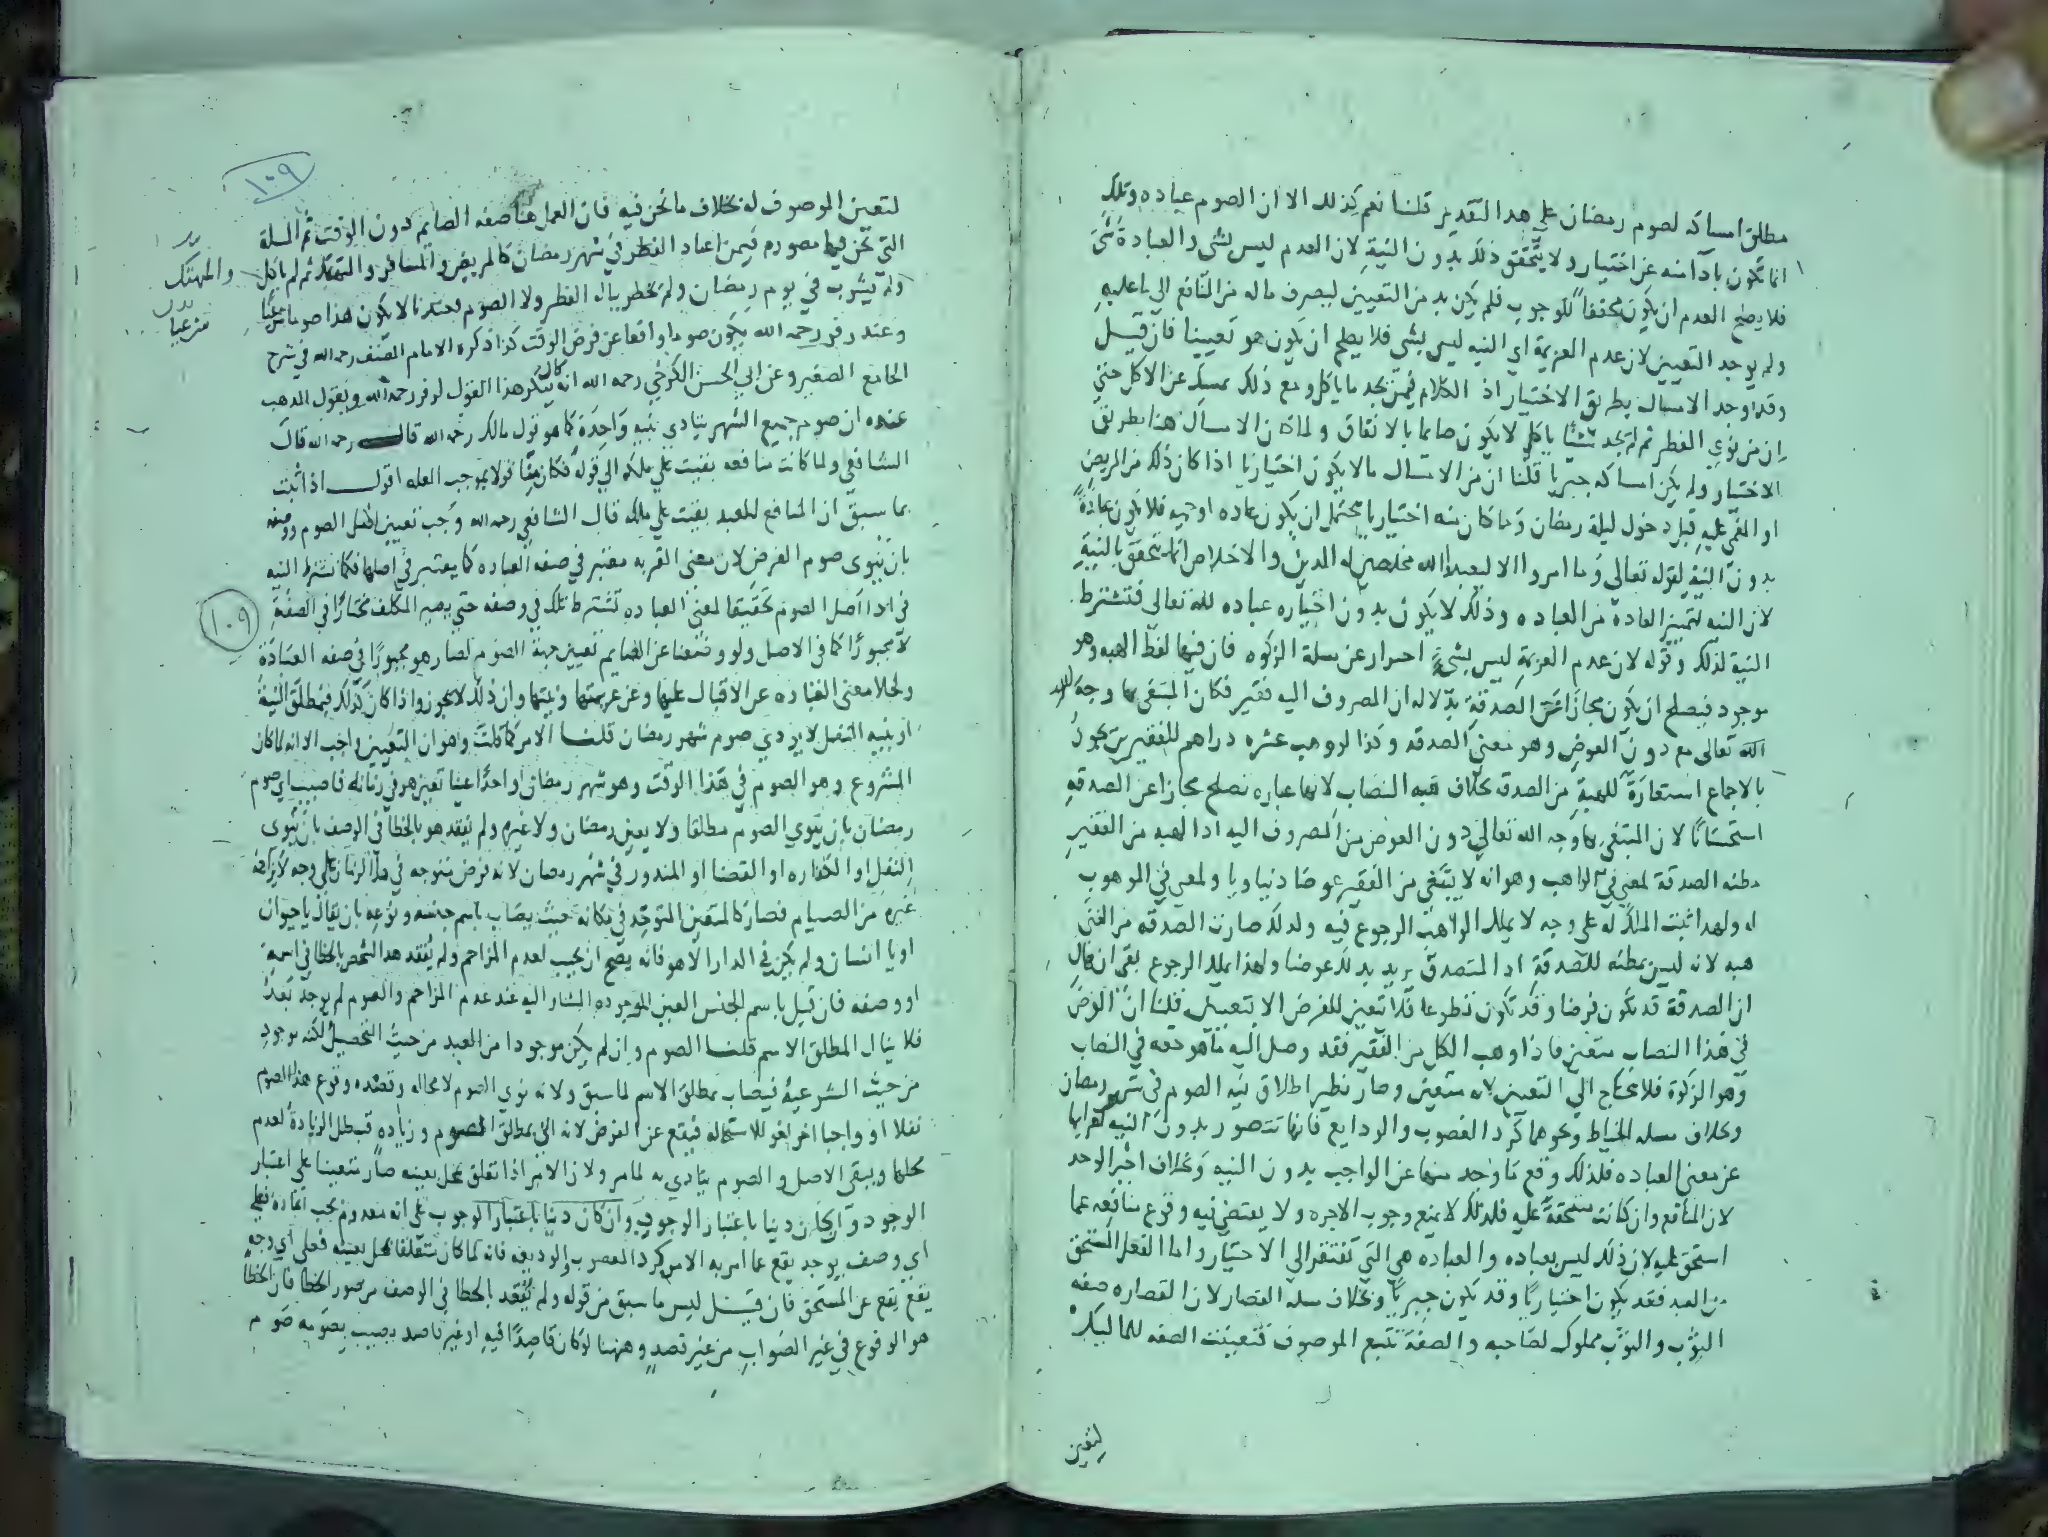 مطلق امساكه لصوم رمضان على هذا التقدير قلنا نعم كذلك الا ان الصوم عباده وتلك
انما تكون بادائه عن اختيار ولا يتحقق ذلك بدون النية لان العدم ليس بشي والعبادة شي
فلا يصلح العدم ان يكون محققا للوجوب فلم يكن بد من التعيين ليصرف ماله من المنافع الي ما عليه
ولم يوجد التعيين لان عدم العزيمة اي النيه ليس بشي فلا يصلح ان يكون هو تعيينا فان قيل
وقد وجد الامساك بطريق الاختيار اذ الكلام فيمن يجد ما ياكل ومع ذلك يمسك عن الاكل حتى
ان من نوى الفطر ثم لم يجد شيئا ياكل لا يكون صائما بالاتفاق ولما كان الامساك هنا بطريق
الاختيار ولم يكن امساكه جبريا قلنا ان من الامساك مالا يكون اختياريا اذا كان ذلك من المريض
او المغمى عليه قبل دخول ليلة رمضان وما كان منه اختياريا يحتمل ان يكون عاده او حميه فلا يكون عبادة
بدون النية لقوله تعالى وما امروا الا ليعبدوا الله مخلصين له الدين والاخلاص انما يتحقق بالنية
لان النيه لتميز العادة من العباده وذلك لا يكون بدون اختياره عباده لله تعالى فتشترط
النية لذلك وقوله لان عدم العزيمة ليس بشي احتراز عن مسلة الزكوه فان فيها لفظ الهبه وهو
موجود فيصلح ان يكون مجازا عن الصدقة بدلالة ان المصروف اليه فقير فكان المبتغى بها وجه
الله تعالى دون العوض وهو معنى الصدقه وكذا لو وهب عشره دراهم للفقيرين يجوز
بالاجماع استعارة للهبة من الصدقه بخلاف هبه النصاب لانها عباره تصلح مجازا عن الصدقة
استحسانا لان المبتغي بها وجه الله تعالى دون العوض من المصروف اليه اذ الهبه من الفقير
مظنه الصدقة لمعنى في الواهب وهو انه لا يبتغى من الفقير عوضا دنياويا ولمعنى في الموهوب
له ولهذا ثبت الملك له على وجه لا يملك الواهب الرجوع فيه ولذلك صارت الصدقه من الغني
هبه لانه ليس بمظنه للصدقة اذ المتصدق يريد بذلك عوضا ولهذا يملك الرجوع بقي ان قال
ان الصدقة قد تكون فرضا وقد تكون تطوعا فلا تعين للفرض الا بتعيين قلنا ان الفرض
في هذا النصاب متعين فاذا وهب الكل من الفقير فقد وصل اليه ما هو حقه في النصاب
وهو الزكوة فلا يحتاج الي التعيين لانه متعين وصار نظير اطلاق نية الصوم في شهر رمضان
وبخلاف مسله الخياط ونحوهما كرد الغصوب والودايع فانها تتصور بدون النيه لعرايها
عن معنى العباده فلذلك وقع ما وجد منها عن الواجب بدون النيه وبخلاف اجير الوحد
لان المنافع وان كانت مستحقة عليه فلذلك لا يمنع وجوب الاجره ولا يقتضي نيه وقوع منافعه عما
استحق عليه لان ذلك ليس بعباده والعباده هي التي تفتقر الي الاختيار واما الفعل المستحق
من العبد فقد يكون اختياريا وقد يكون جبريا وبخلاف مسله القصار لان القصاره صفه
الثوب والثوب مملوك لصاحبه والصفة تتبع الموصوف فتعينت الصفه للمالك
لتعين
١٠٩
لتعين الموصوف له بخلاف ما نحن فيه فان العمل هنا صفه الصايم دون الوقت ثم المسلة
التي نحن فيها مصوره فيمن اعتاد الفطر في شهر رمضان كالمريض والمسافر والمتهتك ثم لم ياكل
والمهتك
ولم يشرب في يوم رمضان ولم يخطر بباله الفطر ولا الصوم فعندنا لا يكون هذا صوما شرعيا
شرعيا
وعند زفر رحمه الله يكون صوما واقعا عن فرض الوقت كذا ذكره الامام المصنف رحمه الله في شرح
الجامع الصغير وعن ابي الحسن الكرخي رحمه الله انه كان ينكر هذا القول لزفر رحمه الله ويقول المذهب
عنده ان صوم جميع الشهر يتادى بنيه واحدة كما هو قول مالك رحمه الله قال رحمه الله قال
الشافعي ولما كانت منافعه بقيت على ملكه الي قوله فكان هذا قولا بموجب العله اقول اذا ثبت
بما سبق ان المنافع للعبد بقيت على ملكه قال الشافعي رحمه الله وجب تعيين اصل الصوم ووصفه
بان ينوى صوم الفرض لان معنى القربه معتبر في صفه العباده كما يعتبر في اصلها فكما تشترط النيه
في ادا اصل الصوم تحقيقا لمعنى العباده تشترط تلك في وصفه حتي يصير المكلف مختارا في الصفة
١٠٩
لا مجبورا كما في الاصل ولو وضعنا عن الصايم تعيين جهة الصوم لصار هو مجبورا في صفه العبادة
ولخلا معنى العباده عن الاقبال عليها وعن عزيمتها ونيتها وان ذلك لا يجوز واذا كان كذلك فبمطلق النية
او بنيه النفل لا يودي صوم شهر رمضان قلنا الامر كما قلت وهو ان التعيين واجب الا انه لما كان
المشروع وهو الصوم في هذا الوقت وهو شهر رمضان واحدا عينا تعين هو في زمانه فاصيب اي صوم
رمضان بان ينوي الصوم مطلقا ولا يعين رمضان ولا غيره ولم يفقد هو بالخطا في الوصف بان ينوى
النفل او الكفاره او القضا او المنذور في شهر رمضان لانه فرض متوجه في هذا الزمان على وجه لا يزاحمه
غيره من الصيام فصار كالمتعين المتوحد في مكانه حيث يصاب باسم جنسه ونوعه بان يقال يا حيوان
او يا انسان ولم يكن في الدار الا هو فانه يصح ان يجيب لعدم المزاحم ولم يفقد هذا الشخص بالخطا في اسمه
او وصفه فان قيل باسم الجنس العين الموجوده المشار اليه عند عدم المزاحم والصوم لم يوجد بعد
فلا ينال المطلق الاسم قلنا الصوم وان لم يكن موجودا من العبد من حيث التحصيل لكنه موجود
من حيث الشرعية فيصاب بمطلق الاسم لما سبق ولانه نوي الصوم لا محاله وقصده وقوع هذا الصوم
نفلا او واجبا اخر لغو للاستحاله فيقع عن الفرض لانه اتى بمطلق الصوم وزياده فبطل الزيادة لعدم
محلها ويبقى الاصل والصوم يتادى به لما مر ولان الامر اذا تعلق بمحل بعينه صار متعينا على اعتبار
الوجود وان كان دينا باعتبار الوجوب وان كان دينا باعتبار الوجوب على انه معدوم يجب ايجاده فعلى
اي وصف يوجد يقع عما امر به الامر كرد المغصوب والوديعه فانه لما كان متعلقا بمحل بعينه فعلى اي وجه
يقع يقع عن المستحق فان قيل ليس ما سبق من قوله ولم يفقد بالخطا في الوصف من صور الخطا فان الخطا
هو الوقوع في غير الصواب من غير قصد وههنا لو كان قاصدا فيه او غير قاصد يصيب بصومه صوم